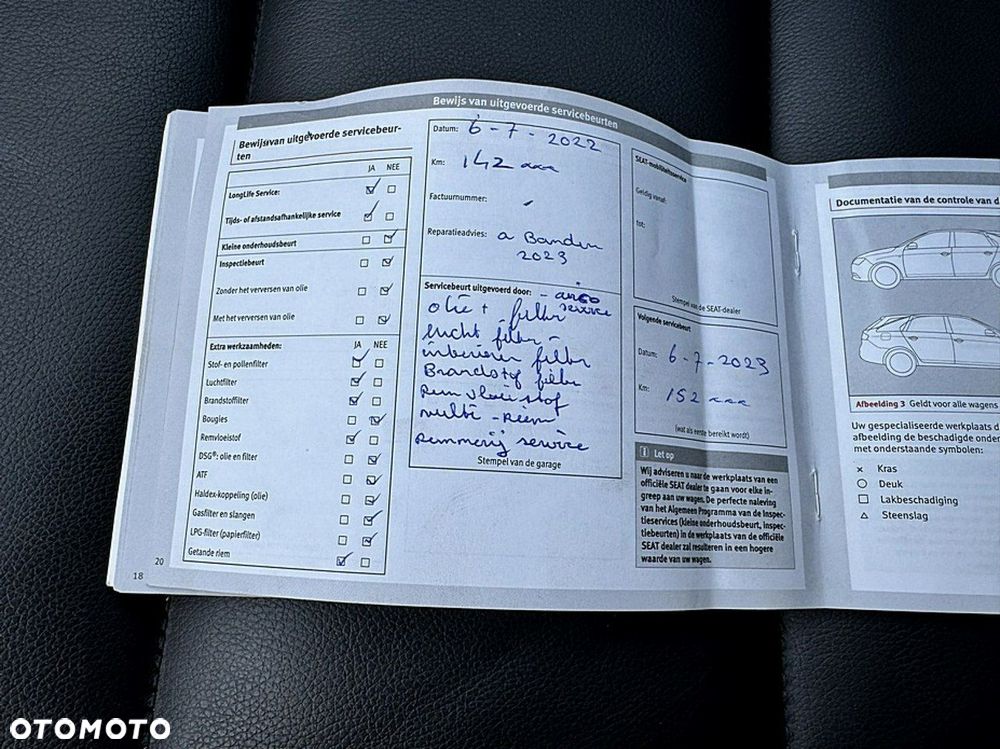 Bewijs van uitgevoerde servicebeurten
Bewijs van uitgevoerde servicebeur-
ten
JA NEE
LongLife Service:
Tijds- of afstandsafhankelijke service
Kleine onderhoudsbeurt
Inspectiebeurt
Zonder het verversen van olie
Met het verversen van olie
Extra werkzaamheden: JA NEE
Stof- en pollenfilter
Luchtfilter
Brandstoffilter
Bougies
Remvloeistof
DSG®: olie en filter
ATF
Haldex-koppeling (olie)
Gasfilter en slangen
LPG-filter (papierfilter)
Getande riem
20
18
Datum: 6-7-2022
Km: 142
Factuurnummer:
Reparatieadvies: a Banden
2023
Servicebeurt uitgevoerd door: - airco
service
olie + filter
lucht filter -
interieur filter
Brandstof filter
Remvloeistof
multi-riem
remmerij service
Stempel van de garage
SEAT-mobiliteitsservice
Geldig vanaf:
tot:
Stempel van de SEAT-dealer
Volgende servicebeurt
Datum: 6-7-2023
Km: 152
(wat als eerste bereikt wordt)
i Let op
Wij adviseren u naar de werkplaats van een
officiële SEAT dealer te gaan voor elke in-
greep aan uw wagen. De perfecte naleving
van het Algemeen Programma van de Inspec-
tieservices (kleine onderhoudsbeurt, inspec-
tiebeurten) in de werkplaats van de officiële
SEAT dealer zal resulteren in een hogere
waarde van uw wagen.
Documentatie van de controle van d
Afbeelding 3 Geldt voor alle wagens
Uw gespecialiseerde werkplaats d
afbeelding de beschadigde onder
met onderstaande symbolen:
× Kras
○ Deuk
□ Lakbeschadiging
△ Steenslag
OTOMOTO